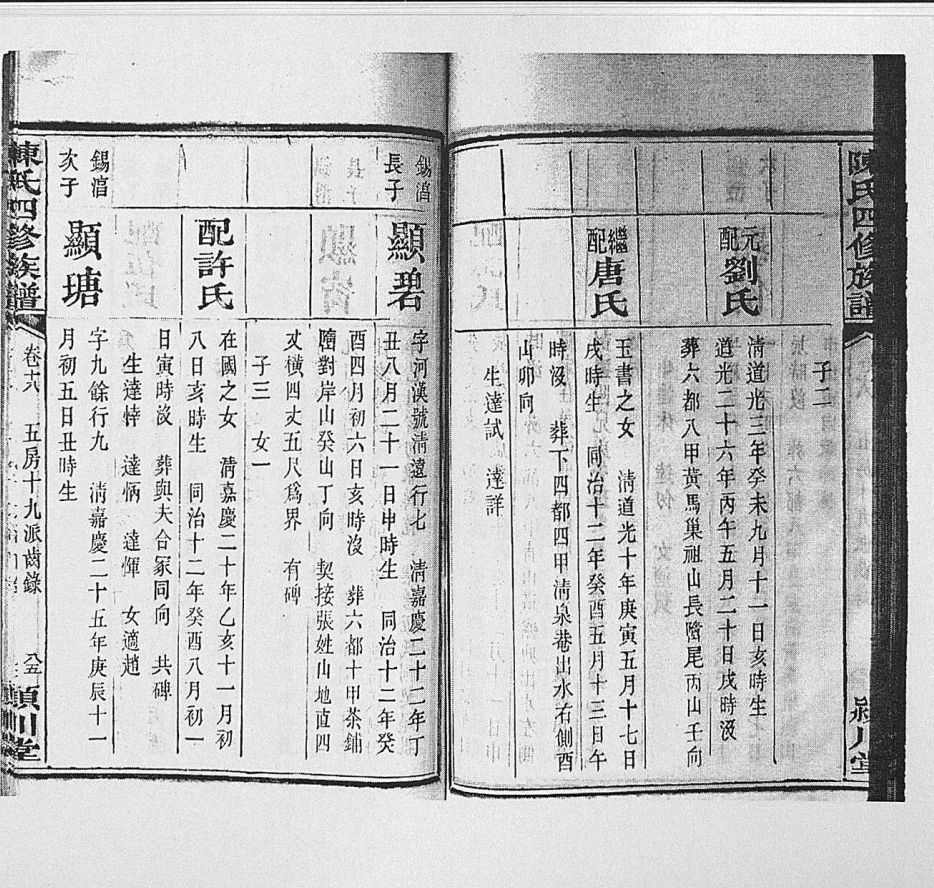 陳氏四修族譜
子二
元配劉氏
清道光三年癸未九月十一日亥時生
道光二十六年丙午五月二十日戌時沒
葬六都八甲黃馬巢祖山長隋尾丙山壬向
繼配唐氏
玉書之女 清道光十年庚寅五月十七日
戌時生 同治十二年癸酉五月十三日午
時沒 葬下四都四甲清泉巷出水右側酉
山卯向
生達試 達詳
錫湻長子
顯碧
字河漢號清遠行七 清嘉慶二十二年丁
丑八月二十一日申時生 同治十二年癸
酉四月初六日亥時沒 葬六都十甲茶鋪
隋對岸山癸山丁向 契接張姓山地直四
丈橫四丈五尺爲界 有碑
子三 女一
配許氏
在國之女 清嘉慶二十年乙亥十一月初
八日亥時生 同治十二年癸酉八月初一
日寅時沒 葬與夫合冢同向 共碑
生達悻 達怲 達惲 女適趙
錫湻次子
顯瑭
字九餘行九 清嘉慶二十五年庚辰十一
月初五日丑時生
陳氏四修族譜 卷十八 五房十九派齒錄 潁川堂